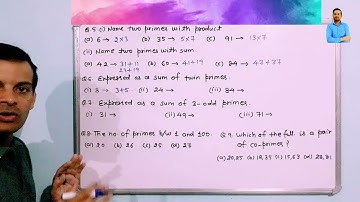 Q.5 (i) Name two primes with product
(a) 6 → 2×3 (b) 35 → 5×7 (c) 91 → 13×7
(ii) Name two primes with sum
(a) 42 → 31+11 (b) 60 → 41+19 (c) 84 → 47+37
23+19
Q.6. Expressed as a sum of twin primes.
(i) 8 → 3+5 (ii) 24 → (iii) 84 →
Q.7. Expressed as a sum of 3-odd primes.
(i) 31 → (ii) 49 → (iii) 71 →
Q.8 The no. of primes b/w 1 and 100. Q.9. Which of the foll. is a pair
(a) 20 (b) 26 (c) 25 (d) 27 of co-primes?
(a) 20,25 (b) (c) 15,63 (d)